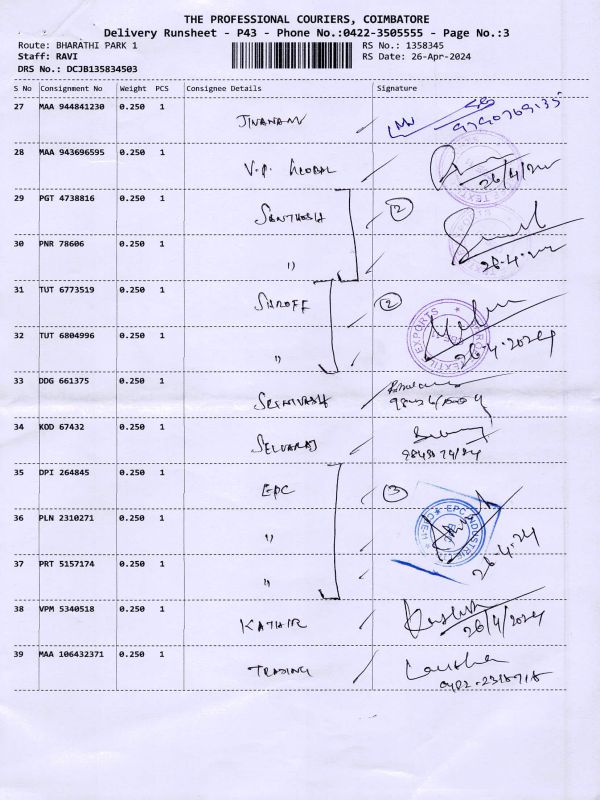 THE PROFESSIONAL COURIERS, COIMBATORE
Delivery Runsheet - P43 - Phone No.:0422-3505555 - Page No.:3
Route: BHARATHI PARK 1 RS No.: 1358345
Staff: RAVI RS Date: 26-Apr-2024
DRS No.: DCJB135834503
S No Consignment No Weight PCS Consignee Details Signature
27 MAA 944841230 0.250 1 JIVANAM
28 MAA 943696595 0.250 1 V.P. GLOBAL 26/4/
29 PGT 4738816 0.250 1 SANTHOSH 2
30 PNR 78606 0.250 1 " 26.4.
31 TUT 6773519 0.250 1 SAROFF 2
EXPORTS
32 TUT 6804996 0.250 1 " 26.4.2024
33 DDG 661375 0.250 1 SRINIVASH
34 KOD 67432 0.250 1 SELVARAJ
35 DPI 264845 0.250 1 EPC 3
EPC INDUSTRI
36 PLN 2310271 0.250 1 " 26.4.24
37 PRT 5157174 0.250 1 "
38 VPM 5340518 0.250 1 KATHIR 26/4/2024
39 MAA 106432371 0.250 1 TRADING